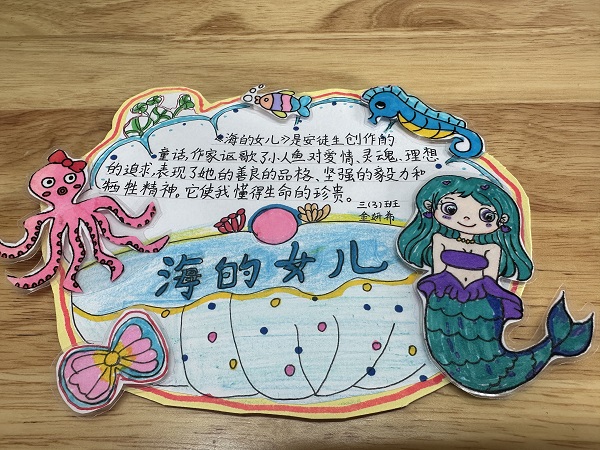 《海的女儿》是安徒生创作的
童话,作家讴歌了小人鱼对爱情、灵魂、理想
的追求,表现了她的善良的品格、坚强的毅力和
牺牲精神。它使我懂得生命的珍贵。
三(3)班
金妍希
海的女儿